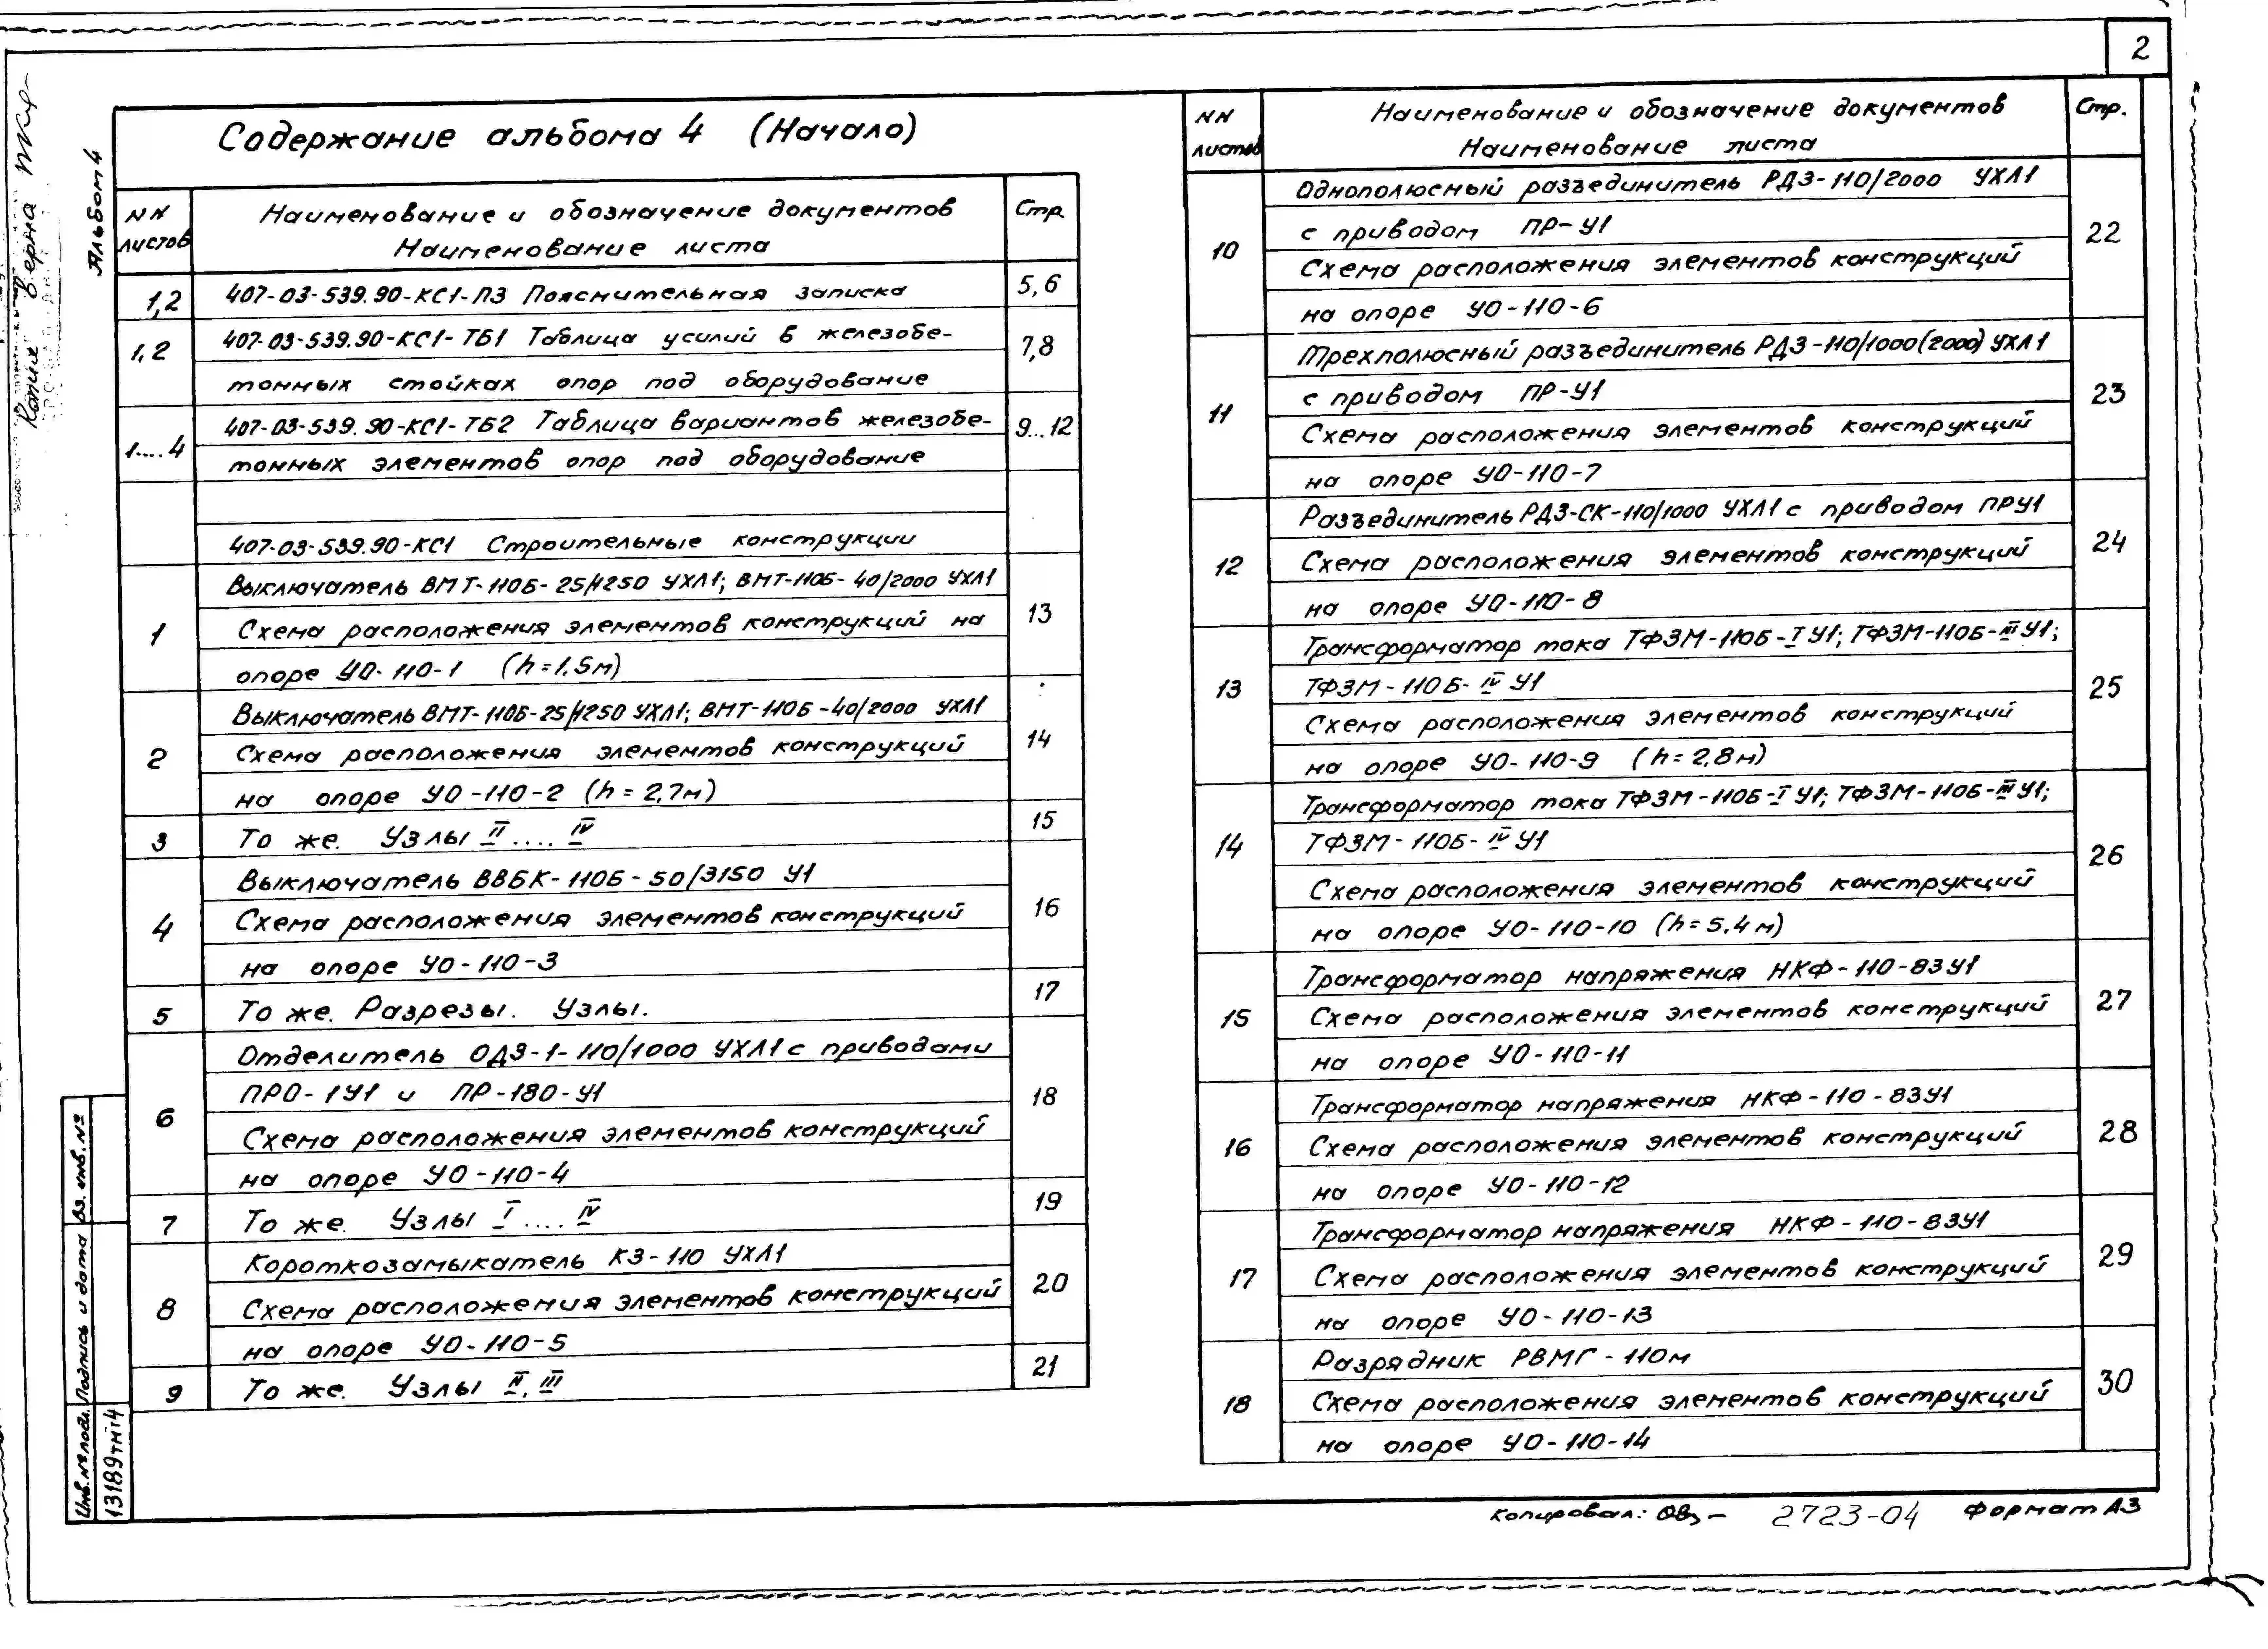 2
Копия верна
Альбом 4
Содержание альбома 4 (Начало)
NN листов
Наименование и обозначение документов
Наименование листа
Стр.
1,2
407-03-539.90-КС1-ПЗ Пояснительная записка
5,6
1,2
407-03-539.90-КС1-ТБ1 Таблица усилий в железобе-
тонных стойках опор под оборудование
7,8
1....4
407-03-539.90-КС1-ТБ2 Таблица вариантов железобе-
тонных элементов опор под оборудование
9...12
407-03-539.90-КС1 Строительные конструкции
1
Выключатель ВМТ-110Б-25/1250 УХЛ1; ВМТ-110Б-40/2000 УХЛ1
Схема расположения элементов конструкций на
опоре УО-110-1 (h=1.5м)
13
2
Выключатель ВМТ-110Б-25/1250 УХЛ1; ВМТ-110Б-40/2000 УХЛ1
Схема расположения элементов конструкций
на опоре УО-110-2 (h=2,7м)
14
3
То же. Узлы II....IV
15
4
Выключатель ВВБК-110Б-50/3150 У1
Схема расположения элементов конструкций
на опоре УО-110-3
16
5
То же. Разрезы. Узлы.
17
6
Отделитель ОДЗ-1-110/1000 УХЛ1 с приводами
ПРО-1У1 и ПР-180-У1
Схема расположения элементов конструкций
на опоре УО-110-4
18
7
То же. Узлы I....IV
19
8
Короткозамыкатель КЗ-110 УХЛ1
Схема расположения элементов конструкций
на опоре УО-110-5
20
9
То же. Узлы II, III
21
NN листов
Наименование и обозначение документов
Наименование листа
Стр.
10
Однополюсный разъединитель РДЗ-110/2000 УХЛ1
с приводом ПР-У1
Схема расположения элементов конструкций
на опоре УО-110-6
22
11
Трехполюсный разъединитель РДЗ-110/1000(2000) УХЛ1
с приводом ПР-У1
Схема расположения элементов конструкций
на опоре УО-110-7
23
12
Разъединитель РДЗ-СК-110/1000 УХЛ1 с приводом ПРУ1
Схема расположения элементов конструкций
на опоре УО-110-8
24
13
Трансформатор тока ТФЗМ-110Б-I У1; ТФЗМ-110Б-III У1;
ТФЗМ-110Б-IV У1
Схема расположения элементов конструкций
на опоре УО-110-9 (h=2,8м)
25
14
Трансформатор тока ТФЗМ-110Б-I У1; ТФЗМ-110Б-III У1;
ТФЗМ-110Б-IV У1
Схема расположения элементов конструкций
на опоре УО-110-10 (h=5,4м)
26
15
Трансформатор напряжения НКФ-110-83У1
Схема расположения элементов конструкций
на опоре УО-110-11
27
16
Трансформатор напряжения НКФ-110-83У1
Схема расположения элементов конструкций
на опоре УО-110-12
28
17
Трансформатор напряжения НКФ-110-83У1
Схема расположения элементов конструкций
на опоре УО-110-13
29
18
Разрядник РВМГ-110м
Схема расположения элементов конструкций
на опоре УО-110-14
30
Вз. инв. №
Подпись и дата
Инв. № подл.
13189тмт4
Копировал:
2723-04
Формат А3